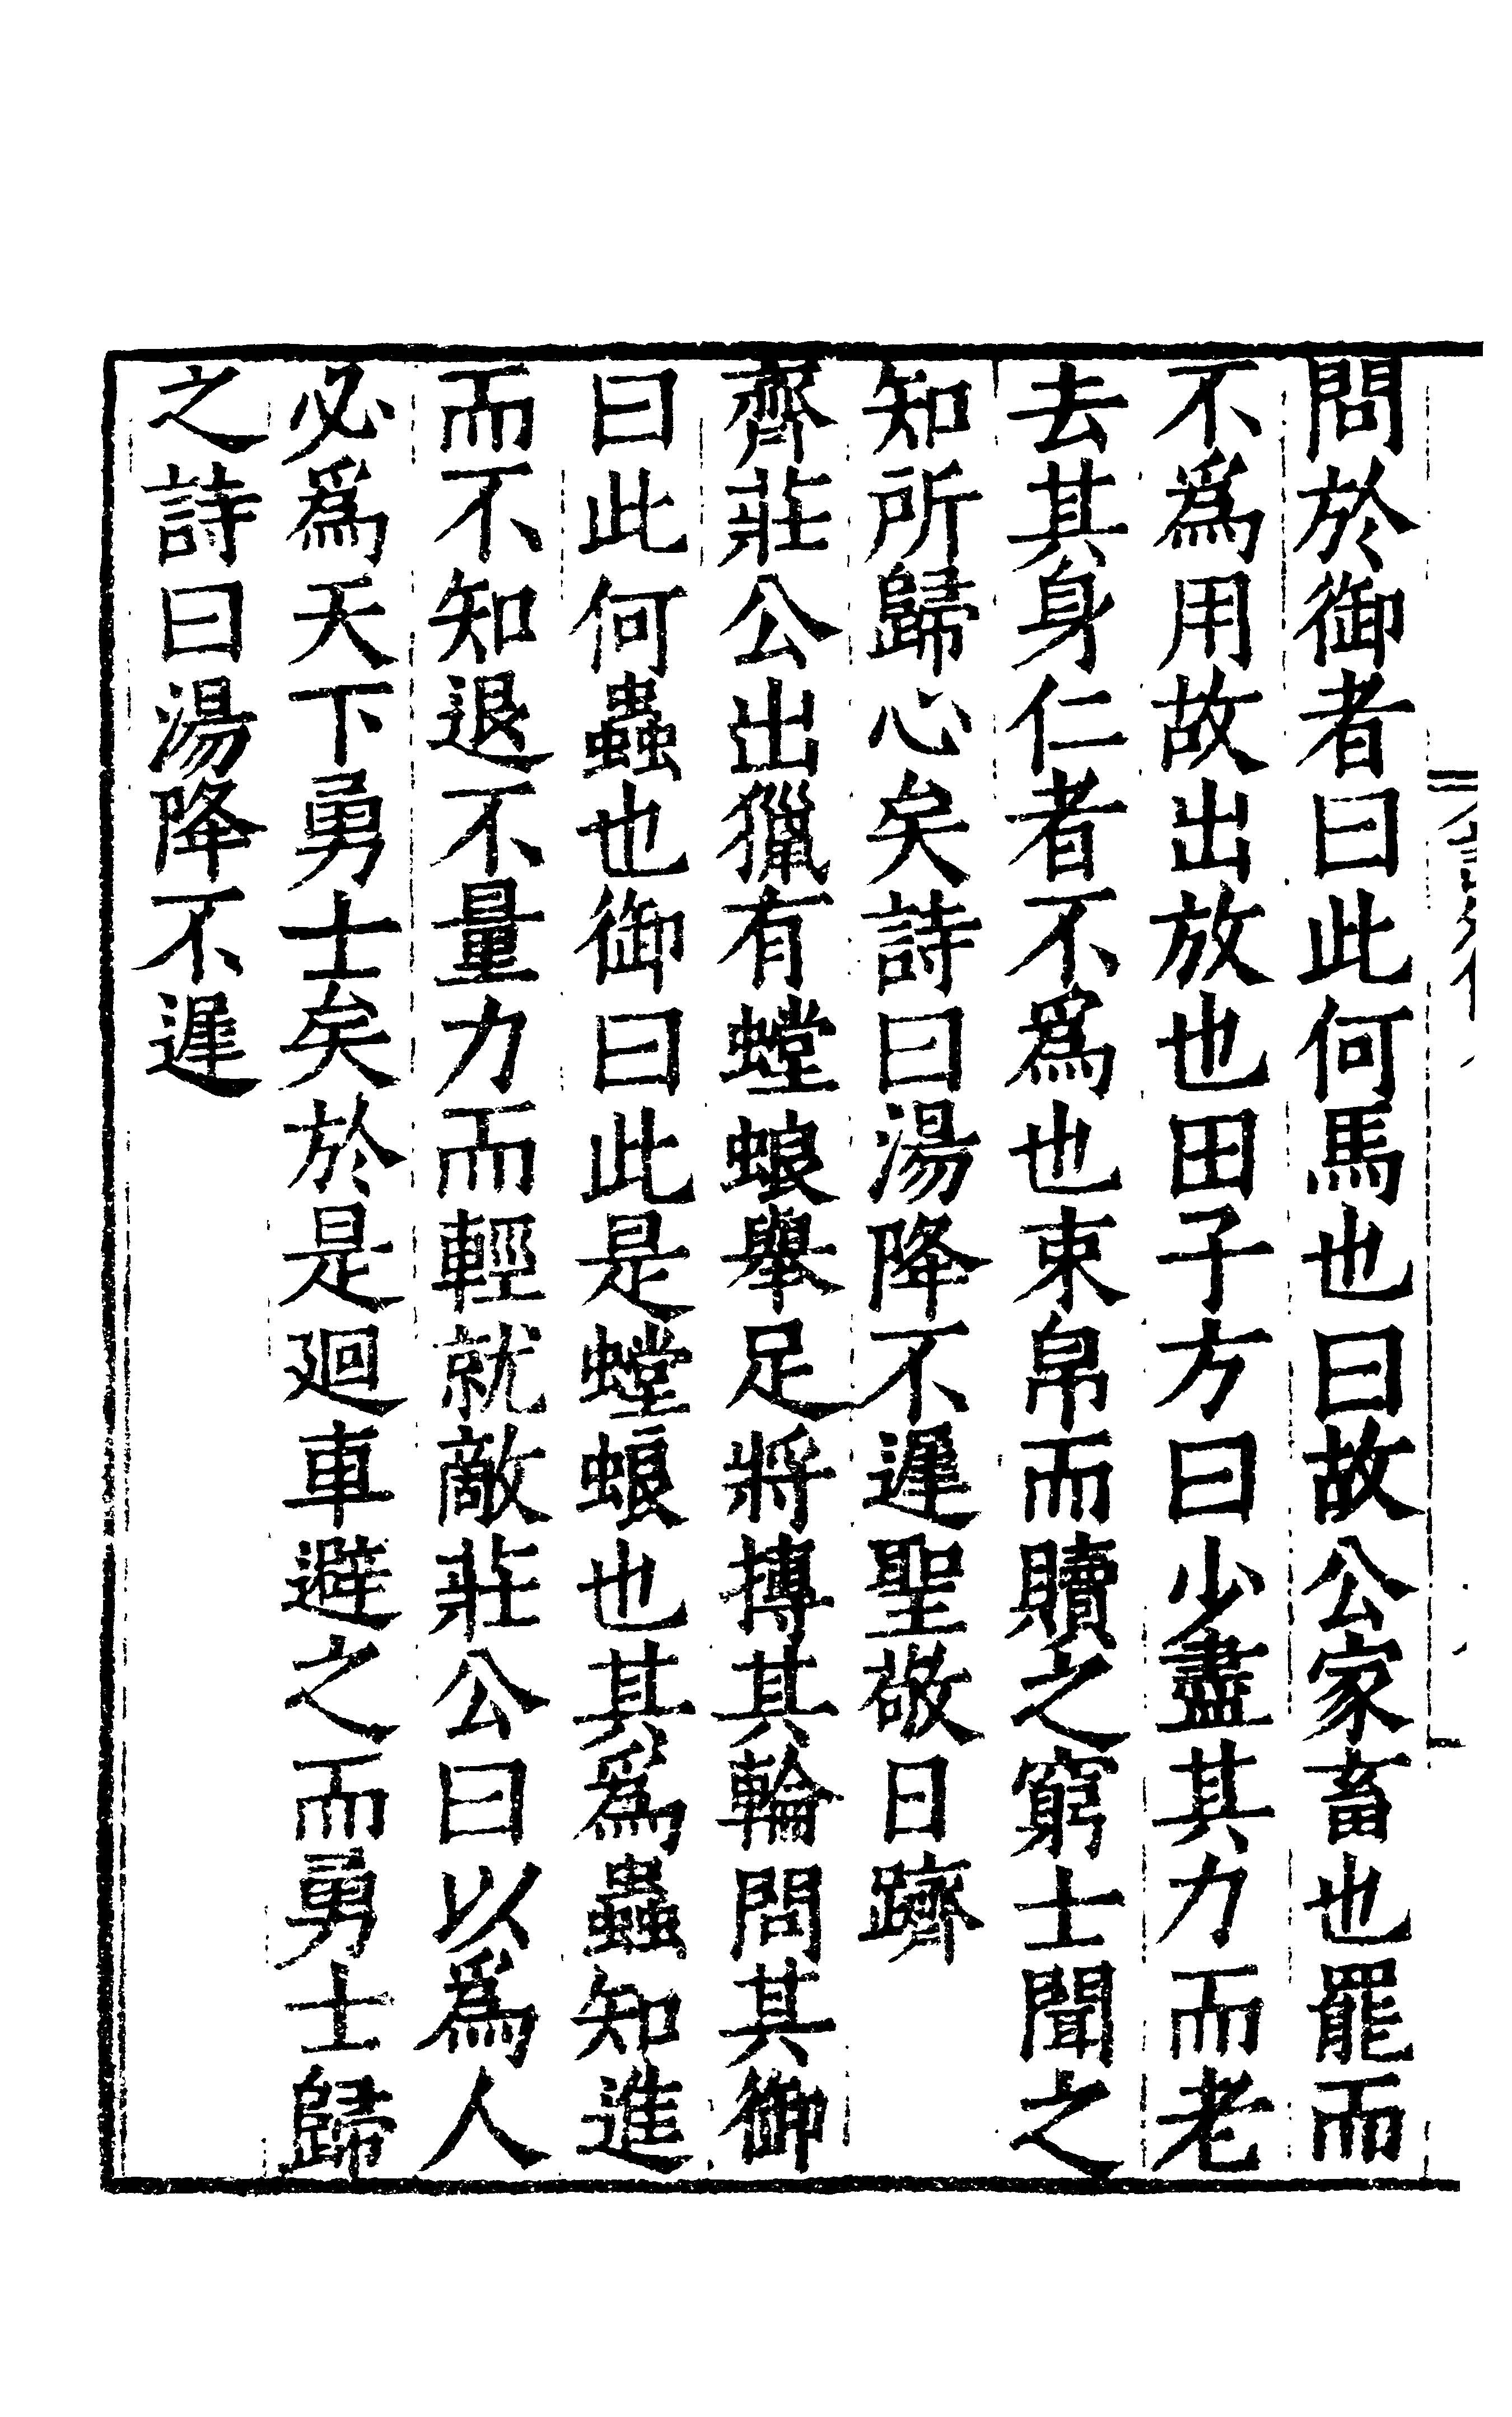 問於御者曰此何馬也曰故公家畜也罷而
不爲用故出放也田子方曰少盡其力而老
去其身仁者不爲也束帛而贖之窮士聞之
知所歸心矣詩曰湯降不遲聖敬日躋
齊莊公出獵有螳蜋舉足將摶其輪問其御
曰此何蟲也御曰此是螳蜋也其爲蟲知進
而不知退不量力而輕就敵莊公曰以爲人
必爲天下勇士矣於是迴車避之而勇士歸
之詩曰湯降不遲